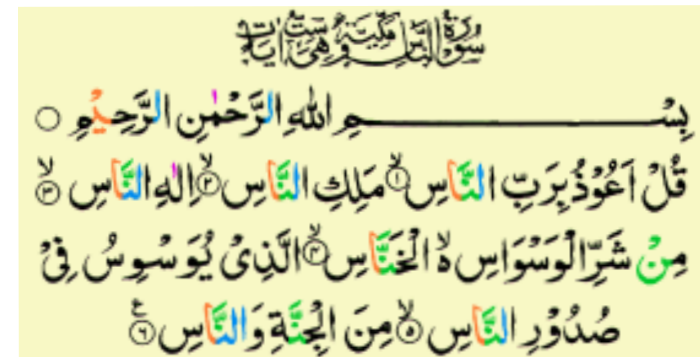 سُوْرَةُ النَّاسِ مَكِّيَّةٌ وَّهِىَ سِتُّ اٰيَاتٍ
بِسْمِ اللهِ الرَّحْمٰنِ الرَّحِيْمِ ○
قُلْ اَعُوْذُ بِرَبِّ النَّاسِ ۙ﴿۱﴾ مَلِكِ النَّاسِ ۙ﴿۲﴾ اِلٰهِ النَّاسِ ۙ﴿۳﴾
مِنْ شَرِّ الْوَسْوَاسِ ۙ۬ الْخَنَّاسِ ۙ﴿۴﴾ الَّذِىْ يُوَسْوِسُ فِىْ
صُدُوْرِ النَّاسِ ۙ﴿۵﴾ مِنَ الْجِنَّةِ وَ النَّاسِ ﴿۶﴾ ع